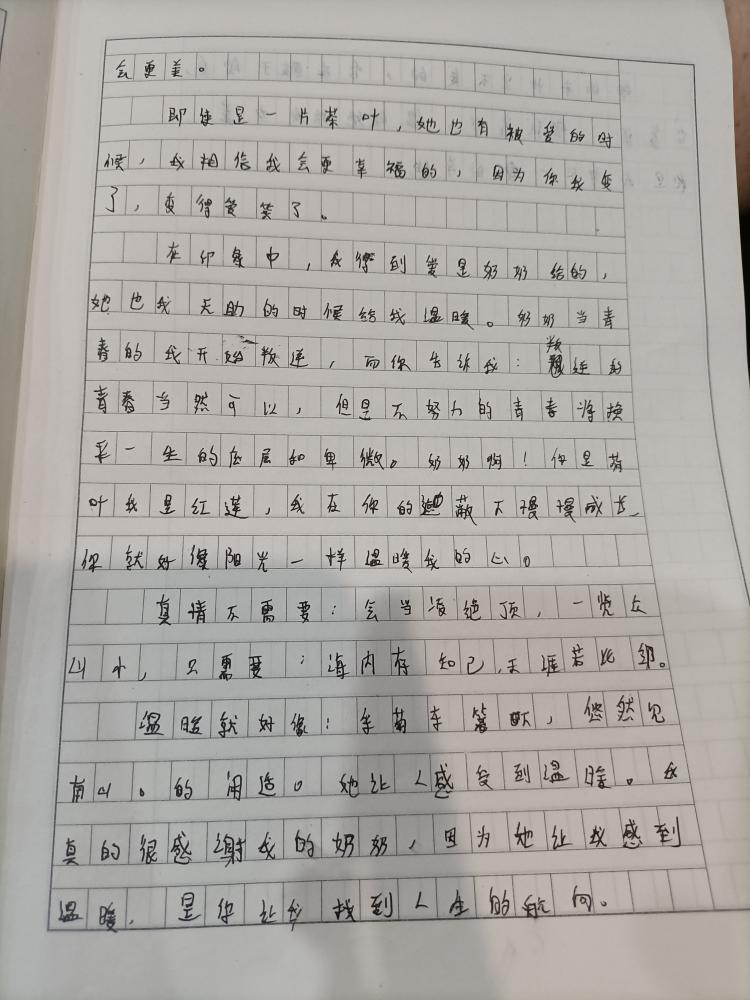 会更美。
即使是一片茶叶，她也有被爱的时
候，我相信我会更幸福的，因为你我变
了，变得爱笑了。
在印象中，我得到爱是奶奶给的，
她也我无助的时候给我温暖。奶奶当青
春的我开始叛逆，而你告诉我：叛逆的
青春当然可以，但是不努力的青春将换
来一生的底层和卑微。奶奶啊！你是荷
叶我是红莲，我在你的遮蔽下慢慢成长
你就好像阳光一样温暖我的心。
真情不需要：会当凌绝顶，一览众
山小，只需要：海内存知己，天涯若比邻。
温暖就好像：采菊东篱下，悠然见
南山。的闲适。她让人感受到温暖。我
真的很感谢我的奶奶，因为她让我感到
温暖，是你让我找到人生的航向。